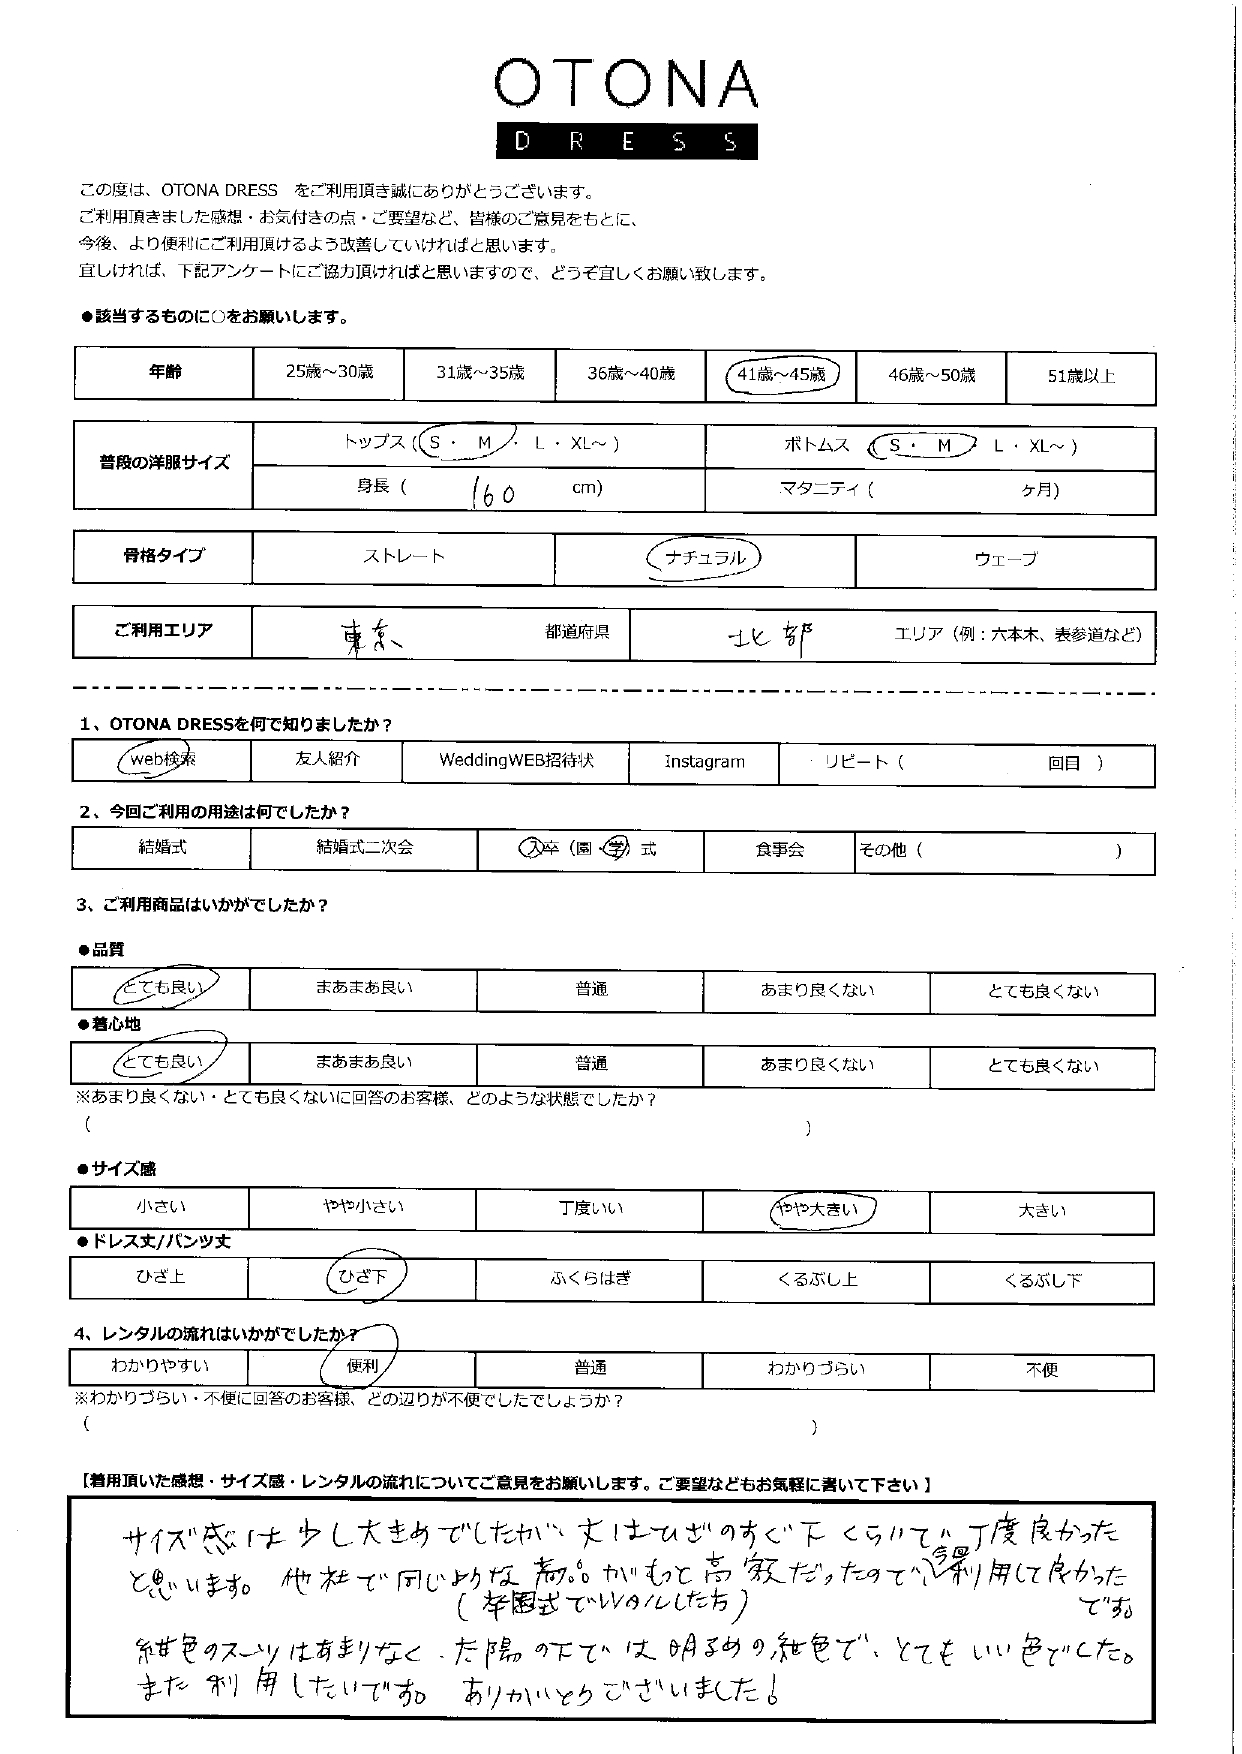 OTONA
DRESS
この度は、OTONA DRESS　をご利用頂き誠にありがとうございます。
ご利用頂きました感想・お気付きの点・ご要望など、皆様のご意見をもとに、
今後、より便利にご利用頂けるよう改善していければと思います。
宜しければ、下記アンケートにご協力頂ければと思いますので、どうぞ宜しくお願い致します。
●該当するものに○をお願いします。
年齢 25歳～30歳 31歳～35歳 36歳～40歳 41歳～45歳 46歳～50歳 51歳以上
普段の洋服サイズ トップス (S・ M ・ L ・ XL～ ) ボトムス (S・ M L ・ XL～ )
身長 ( 160 cm) マタニティ ( ヶ月)
骨格タイプ ストレート ナチュラル ウェーブ
ご利用エリア 東京 都道府県 北部 エリア（例：六本木、表参道など）
1、OTONA DRESSを何で知りましたか？
web検索 友人紹介 WeddingWEB招待状 Instagram リピート（ 回目 ）
2、今回ご利用の用途は何でしたか？
結婚式 結婚式二次会 入卒（園・学）式 食事会 その他（ ）
3、ご利用商品はいかがでしたか？
●品質
とても良い まあまあ良い 普通 あまり良くない とても良くない
●着心地
とても良い まあまあ良い 普通 あまり良くない とても良くない
※あまり良くない・とても良くないに回答のお客様、どのような状態でしたか？
( )
●サイズ感
小さい やや小さい 丁度いい やや大きい 大きい
●ドレス丈/パンツ丈
ひざ上 ひざ下 ふくらはぎ くるぶし上 くるぶし下
4、レンタルの流れはいかがでしたか？
わかりやすい 便利 普通 わかりづらい 不便
※わかりづらい・不便に回答のお客様、どの辺りが不便でしたでしょうか？
( )
【着用頂いた感想・サイズ感・レンタルの流れについてご意見をお願いします。ご要望などもお気軽に書いて下さい 】
サイズ感は少し大きめでしたが、丈はひざのすぐ下くらいで丁度良かった
と思います。他社で同じような商品がもっと高額だったので今回利用して良かった
(卒園式でレンタルしたら) です。
紺色のスーツはあまりなく、太陽の下では明るめの紺色で、とてもいい色でした。
また利用したいです。ありがとうございました！